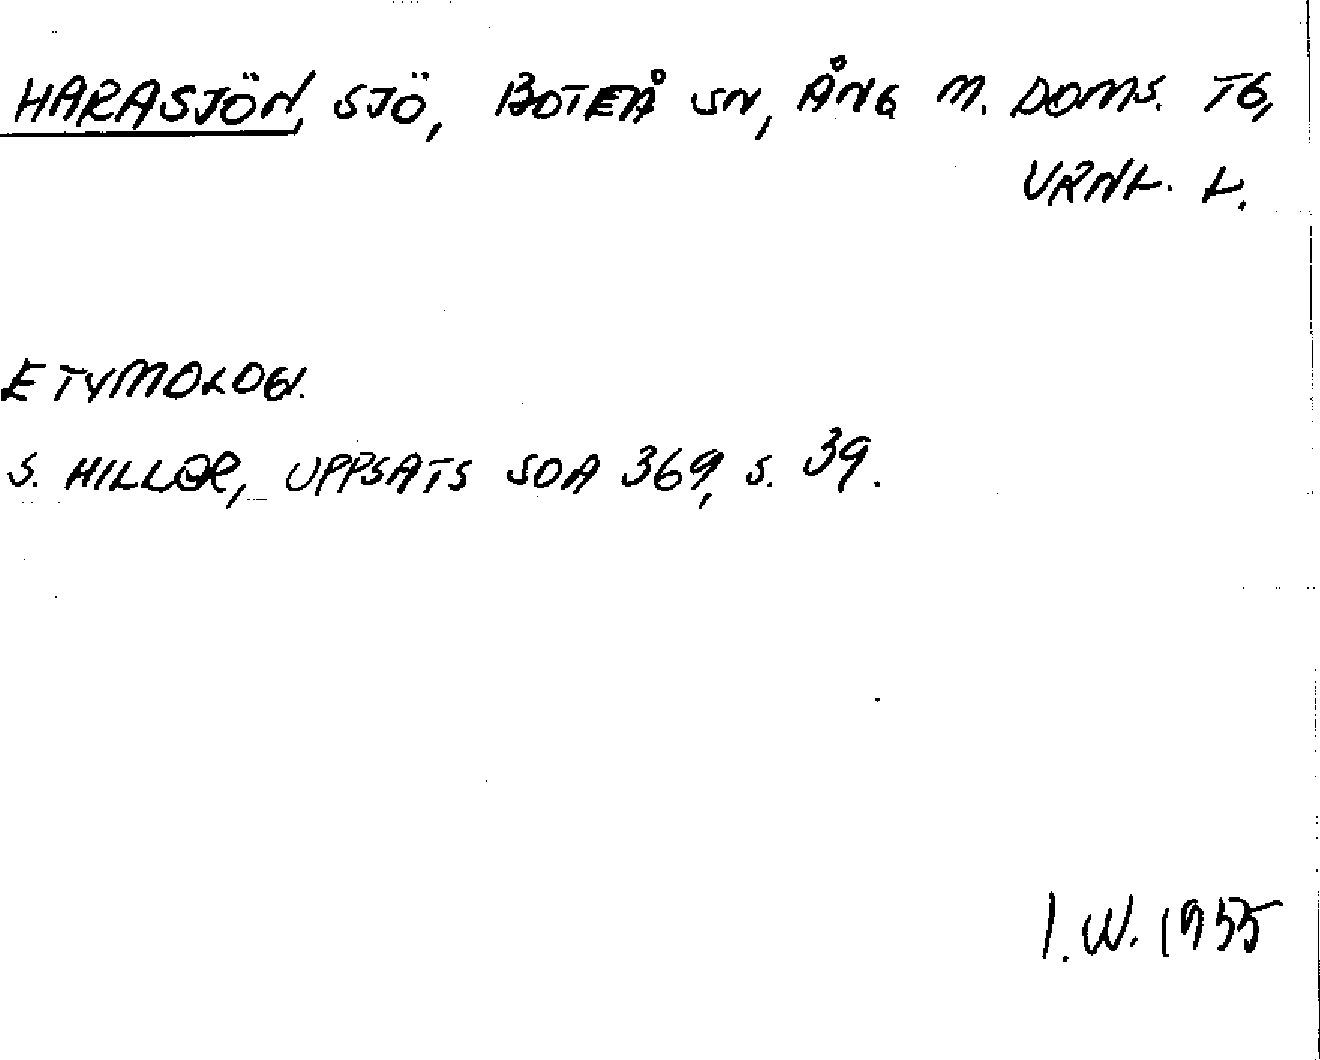 HARASJÖN, SJÖ, BOTEÅ SN, ÅNG M. DOMS. TG,
VRNL. L.
ETYMOLOGI.
S. HILLER, UPPSATS SOA 369, S. 39.
I.W. 1955